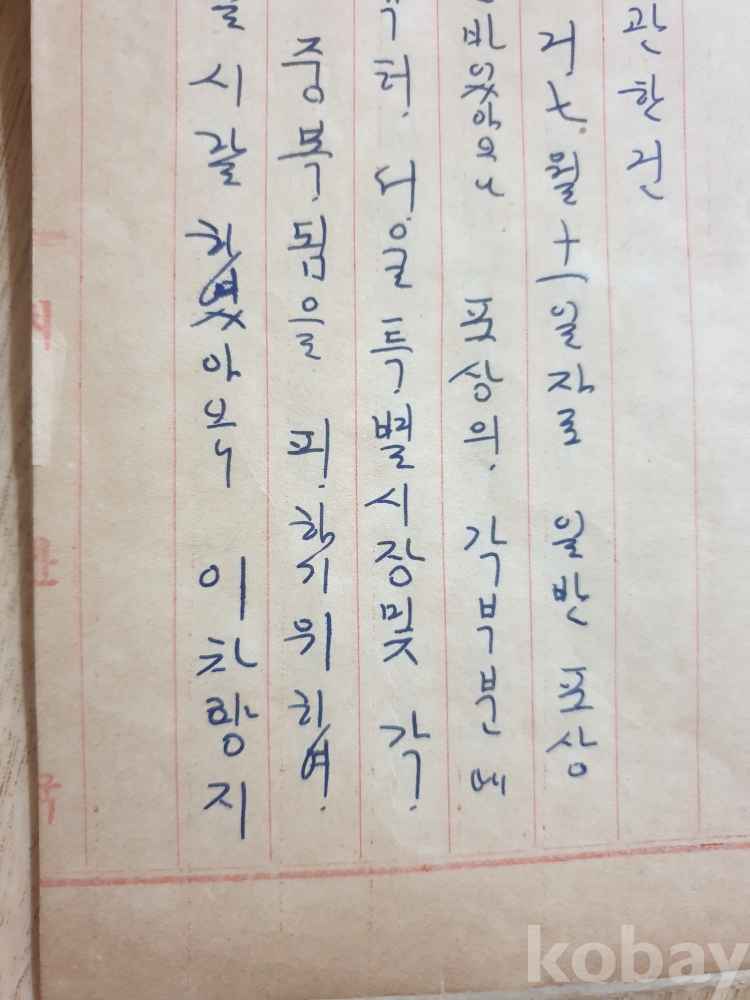 관한건
거七월十一일자로 일반 포상
바있아오나 포상의. 각부분에
터. 서울특별시장및 각.
중복.됨을 피.하기위하여.
을 시달하였아오니 이 지
국
kobay